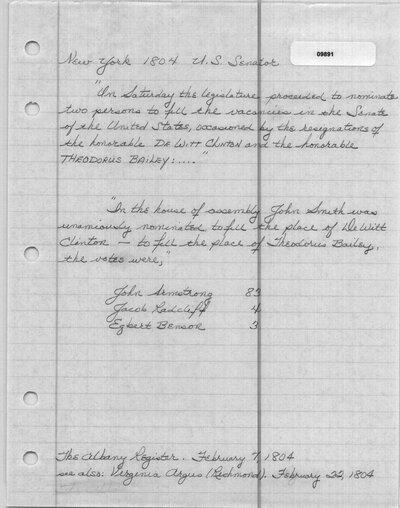 09891
New York 1804 U.S. Senator
"On Saturday the legislature proceeded to nominate
two persons to fill the vacancies in the Senate
of the United States, occasioned by the resignations of
the honorable DE WITT CLINTON and the honorable
THEODORUS BAILEY: ...."
"In the house of assembly John Smith was
unamiously nominated to fill the place of De Witt
Clinton — to fill the place of Theodorus Bailey,
the votes were,"
John Armstrong 83
Jacob Radcliff 4
Egbert Benson 3
The Albany Register. February 7, 1804
see also: Virginia Argus (Richmond). February 22, 1804